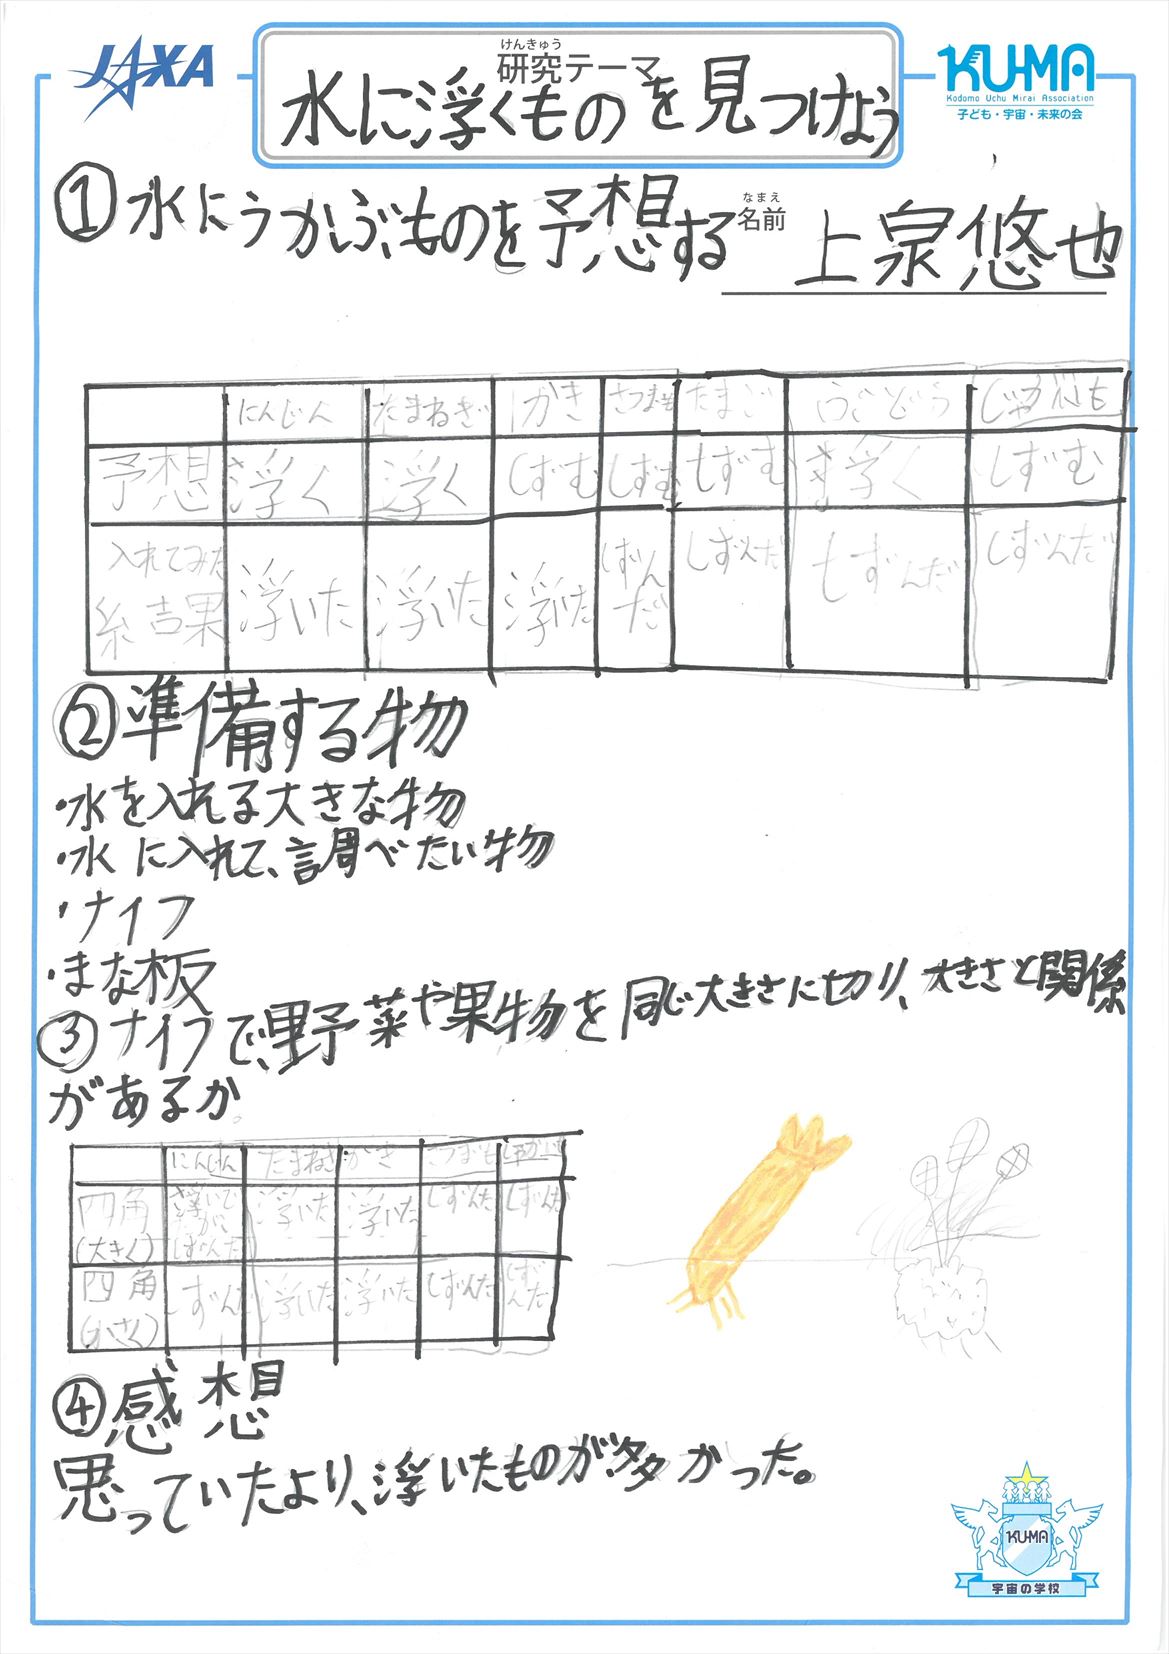 JAXA
けんきゅう
研究テーマ
水に浮くものを見つけよう
KU-MA
Kodomo Uchu Mirai Association
子ども・宇宙・未来の会
①水にうかぶものを予想する
なまえ
名前 上泉悠也
にんじん たまねぎ かき さつまも たまご じゃがいも
予想 浮く 浮く しずむ しずむ しずむ 浮く しずむ
入れてみた結果 浮いた 浮いた 浮いた しずんだ しずんだ しずんだ しずんだ
②準備する物
・水を入れる大きな物
・水に入れて、調べたい物
・ナイフ
・まな板
③ナイフで、野菜や果物を同じ大きさに切り、大きさと関係
があるか
にんじん たまねぎ かき さつまも
四角(大きく) 浮いた 浮いた しずんだ しずんだ
四角(小さく) しずんだ 浮いた 浮いた しずんだ しずんだ
④感想
思っていたより、浮いたものが多かった。
KU-MA
宇宙の学校